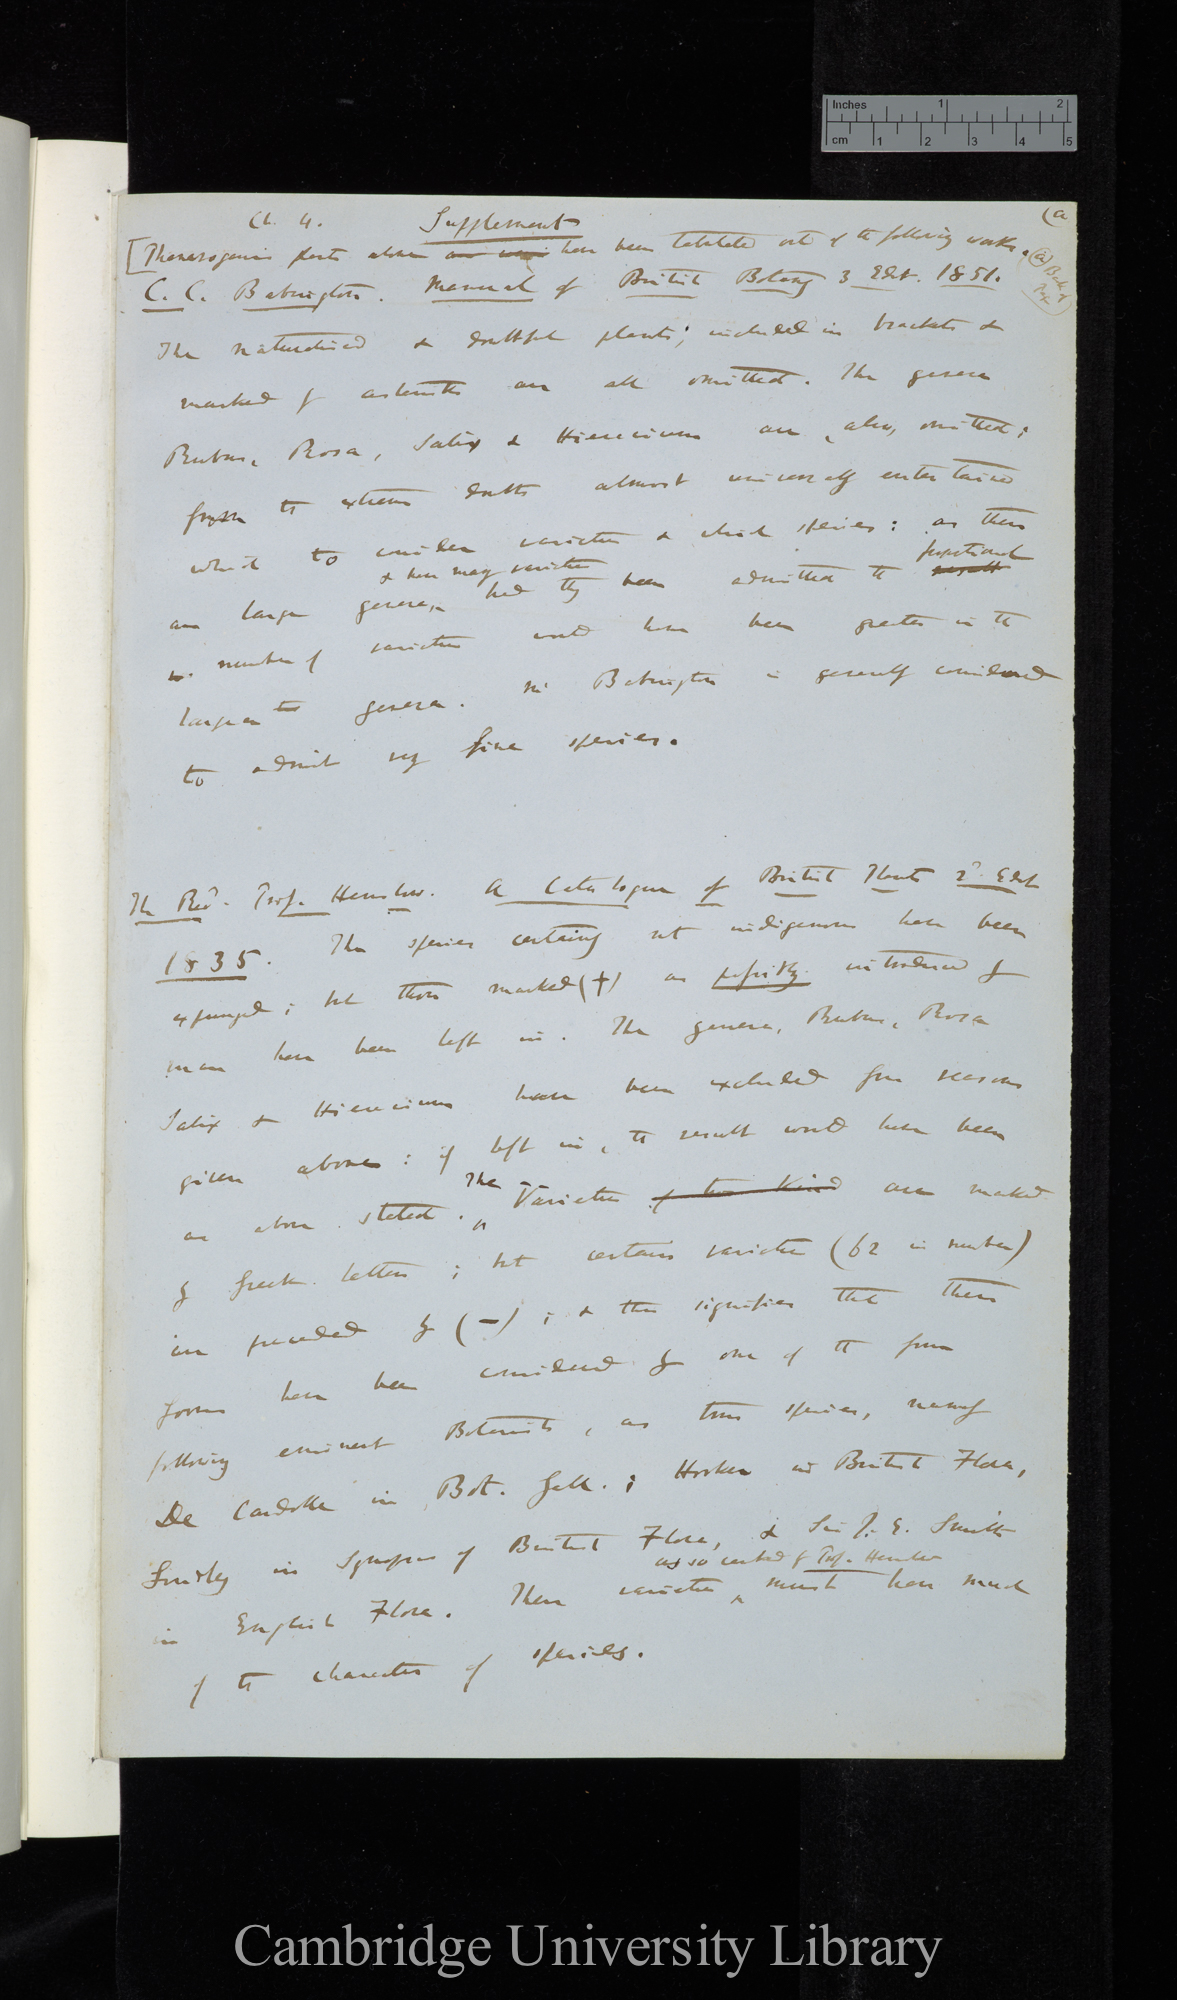 Inches 1 2
cm 1 2 3 4 5
(a
Ch. 4. Supplement
[Phanerogamic plants alone are used have been tabulated out of the following works.
(a) Back of Page
C. C. Babington. Manual of British Botany 3 Edit. 1851.
The naturalised & doubtful plants, included in brackets &
marked by asterisks are all omitted. The genera
Rubus, Rosa, Salix & Hieracium are, also, omitted;
from the extreme doubts almost universally entertained
what to consider varieties & which species: as these
& have many varieties fractional
are large genera, had they been admitted the result
number of varieties would have been greater in the
larger the genera. Mr Babington is generally considered
to admit very fine species.
The Revd. Prof. Henslow. A Catalogue of British Plants 2d. Edit
1835. The species certainly not indigenous have been
expunged; but those marked (+) as possibly introduced by
man have been left in. The genera, Rubus, Rosa
Salix & Hieracium have been excluded from reasons
given above: if left in, the result would have been
as above stated. The Varieties of two kind are marked
by Greek letters; but certain varieties (62 in number)
are preceded by (–); & this signifies that these
forms have been considered by one of the four
following eminent Botanists, as true species, namely
De Candolle in Bot. Gall.; Hooker in British Flora,
Lindley in Synopsis of British Flora, & Sir J. E. Smith
as so ranked by Prof. Henslow
in English Flora. These varieties must have much
of the character of species.
Cambridge University Library